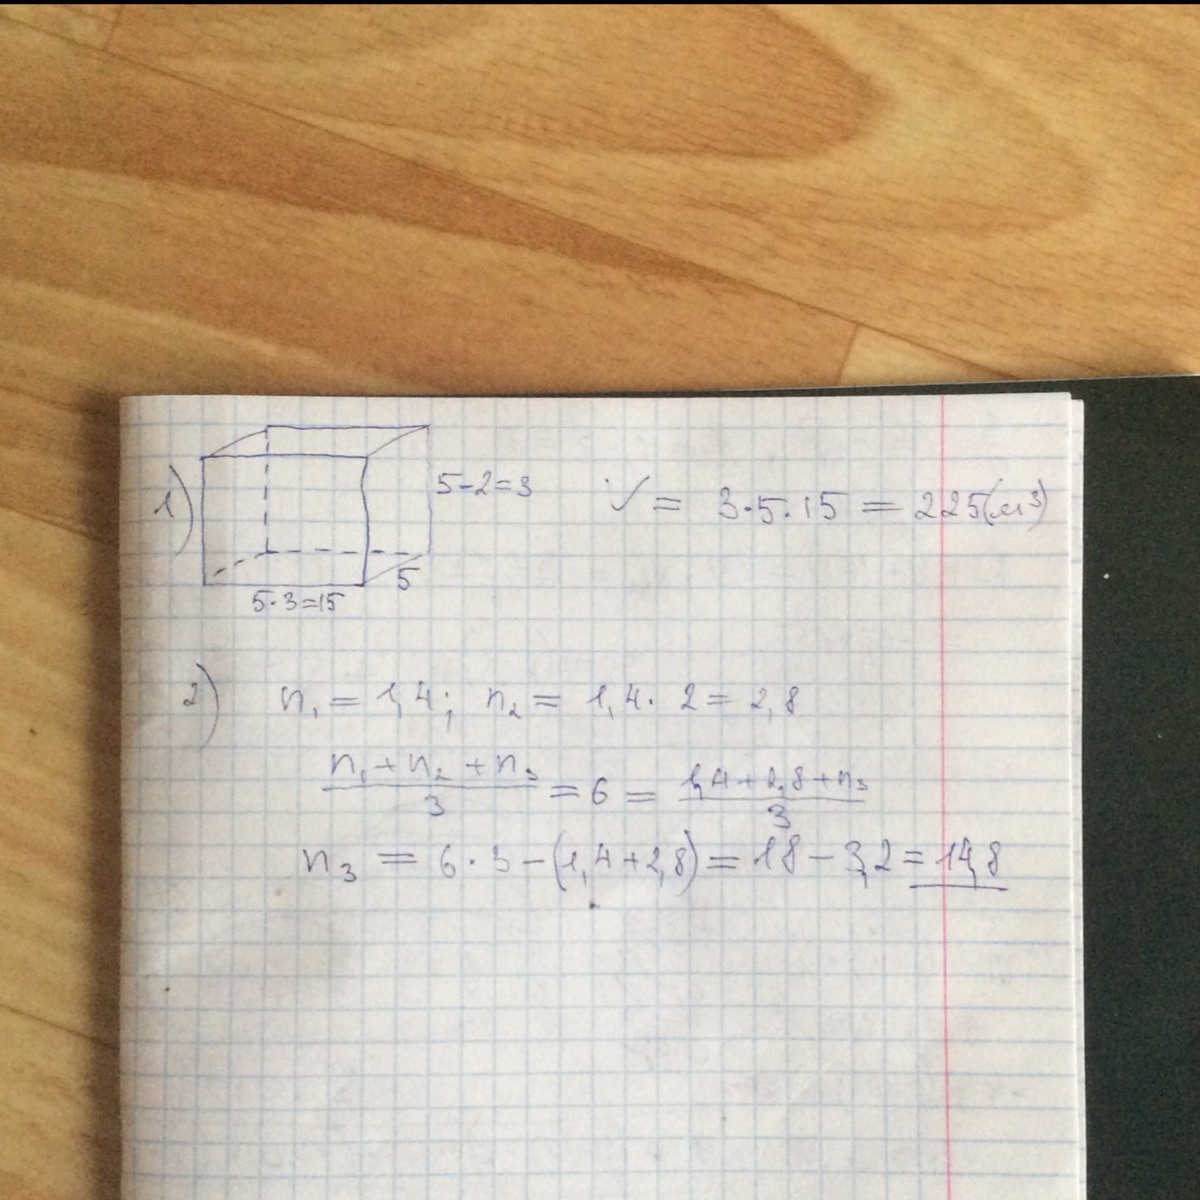 1)
5-2=3
V = 3·5·15 = 225(м³)
5
5·3=15
2) n₁ = 1,4; n₂ = 1,4· 2 = 2,8
(n₁ + n₂ + n₃)/3 = 6 = (1,4+2,8+n₃)/3
n₃ = 6·3-(1,4+2,8) = 18-3,2 = 14,8